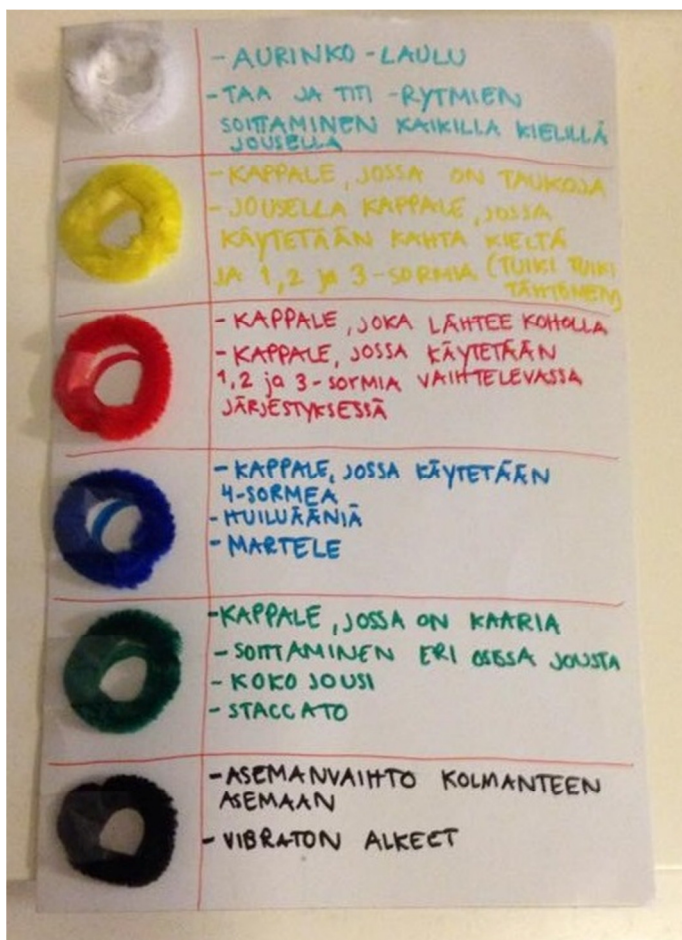 - AURINKO - LAULU
- TAA JA TITI - RYTMIEN
SOITTAMINEN KAIKILLA KIELILLÄ
JOUSELLA
- KAPPALE, JOSSA ON TAUKOJA
- JOUSELLA KAPPALE, JOSSA
KÄYTETÄÄN KAHTA KIELTÄ
JA 1, 2 ja 3 - SORMIA (TUIKI TUIKI
TÄHTÖNEN)
- KAPPALE, JOKA LÄHTEE KOHOLLA
- KAPPALE, JOSSA KÄYTETÄÄN
1, 2 ja 3 - SORMIA VAIHTELEVASSA
JÄRJESTYKSESSÄ
- KAPPALE, JOSSA KÄYTETÄÄN
4-SORMEA
- HUILUÄÄNIÄ
- MARTELE
- KAPPALE, JOSSA ON KAARIA
- SOITTAMINEN ERI OSISSA JOUSTA
- KOKO JOUSI
- STACCATO
- ASEMANVAIHTO KOLMANTEEN
ASEMAAN
- VIBRATON ALKEET